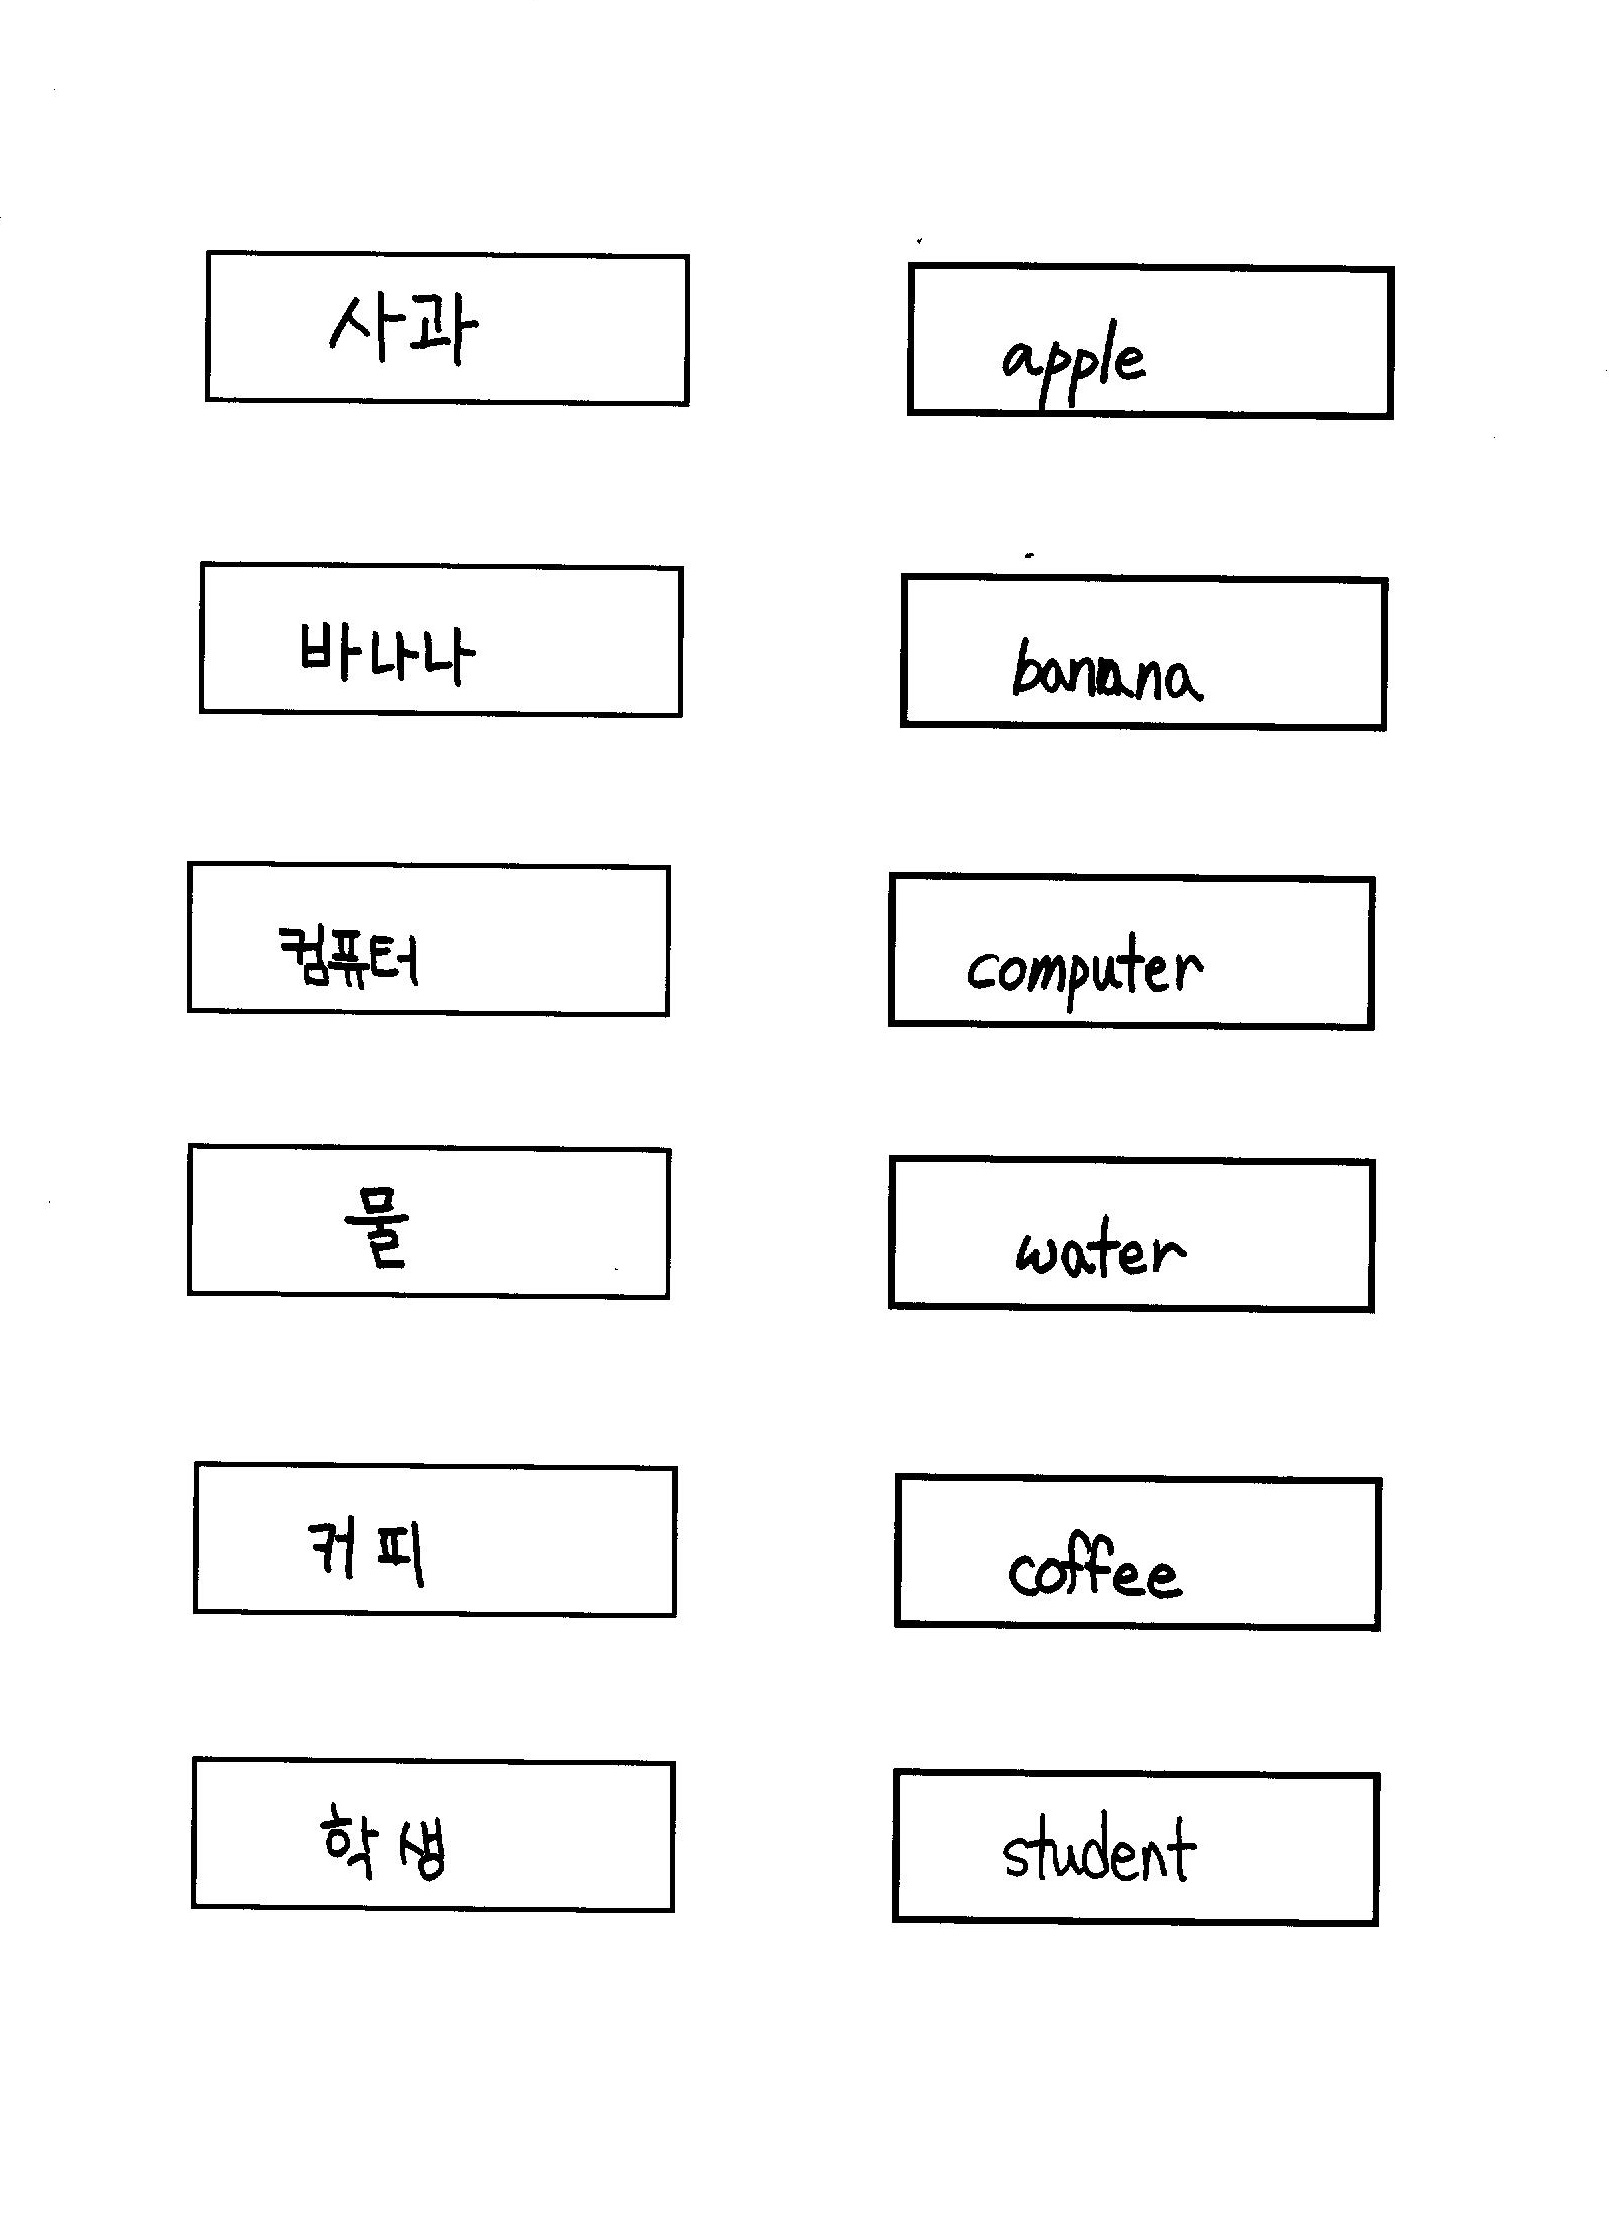 사과 apple
바나나 banana
컴퓨터 computer
물 water
커피 coffee
학생 student